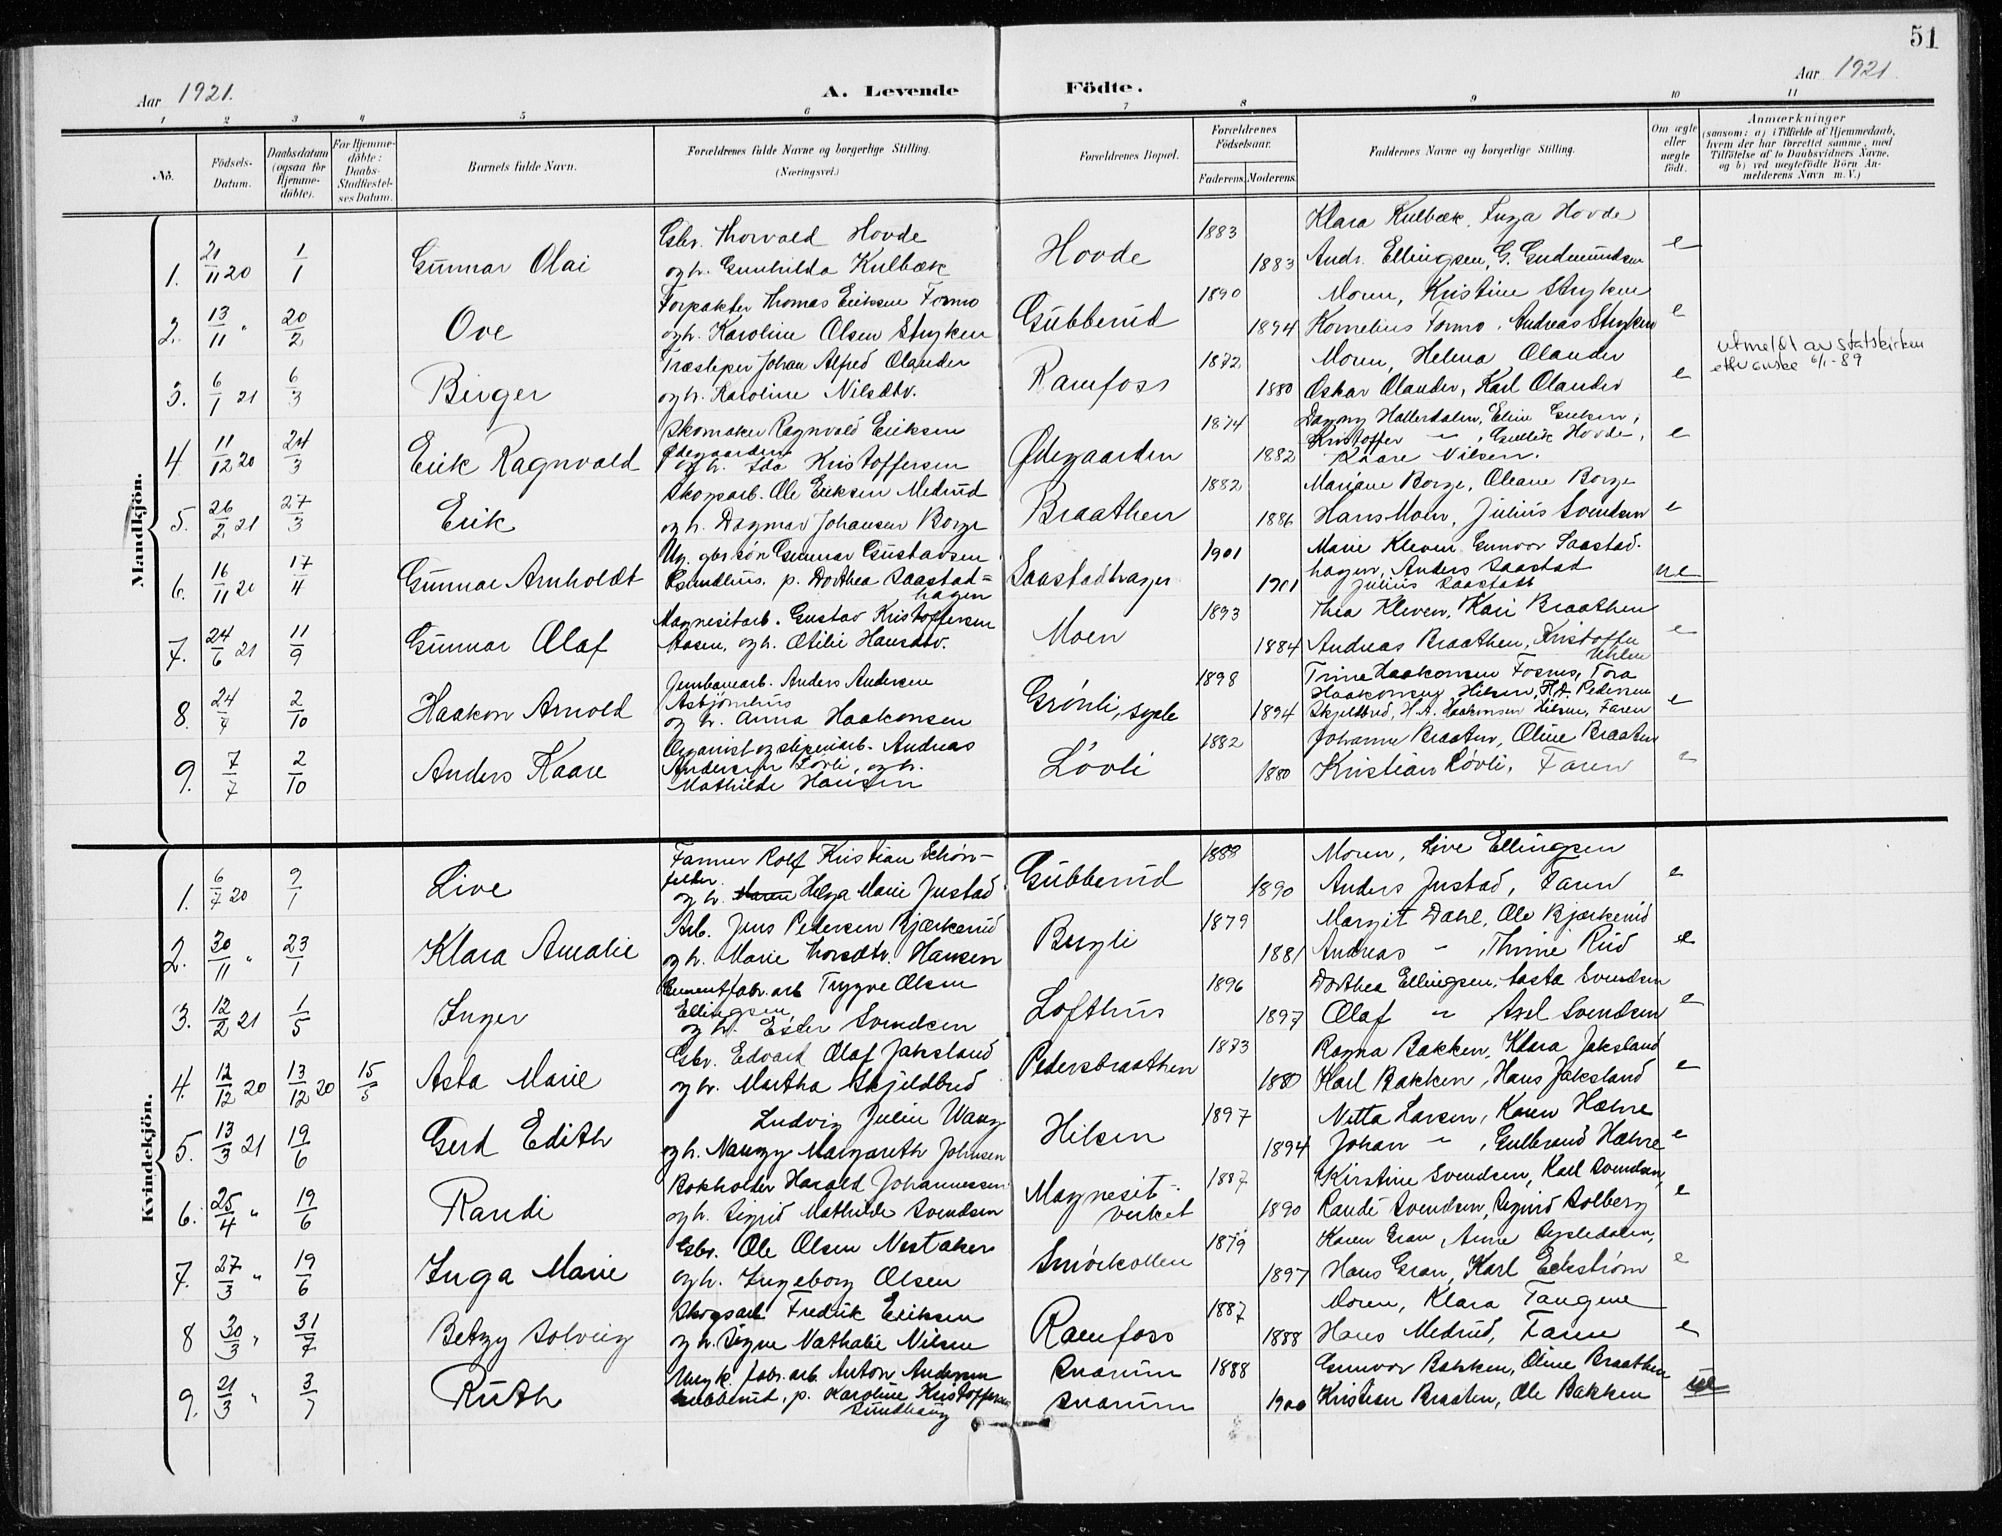 51
Aar 1921.
A. Levende
Födte.
Aar 1921
1 2 3 4 5 6 7 8 9 10 11
No.
Födsels-
Datum.
Daabsdatum
(ogsaa for
Hjemme-
döbte).
For Hjemme-
döbte:
Daabs-
Stadfæstel-
ses Datum.
Barnets fulde Navn.
Forældrenes fulde Navne og borgerlige Stilling.
(Næringsvei.)
Forældrenes Bopæl.
Forældrenes
Födselsaar.
Faderens. Moderens.
Faddernes Navne og borgerlige Stilling.
Om ægte
eller
uægte
født.
Anmærkninger
(saasom: a) i Tilfælde af Hjemmedaab,
hvem der har forrettet samme, med
Tilföielse af to Daabsvidners Navne,
og b) ved uægtefödte Börn An-
melderens Navn m. V.)
Mandkjön.
1. 21/11 20 1/1 Gunnar Olai
Gbr. Thorvald Hovde
og h. Gunhilda Kulbæk
Hovde 1883 1883
Klara Kulbæk, Inga Hovde
Andr. Ellingsen, G. Gudmundsen
e
2. 13/11 " 20/2 Ove
Forpakter Thomas Eriksen Formo
og h. Karoline Olsen Stryken
Gubberud 1890 1894
Moren, Kristine Stryken
Kornelius Formo, Andreas Stryken
e
3. 6/1 21 6/3 Birger
Træsliper Johan Alfred Olander
og h. Karoline Nilsdtr.
Ramfoss 1872 1880
Moren, Helma Olander
Oskar Olander, Karl Olander
e
utmeldt av statskirken
etter ønske 6/1-89
4. 11/12 20 24/3 Erik Ragnvald
Skomaker Ragnvald Eriksen
Ødegaarden
og h. Ida Kristoffersen
Ødegaarden 1874 1882
Dagny Hallerdalen, Eline Gulsen,
Kristoffer " , Gullik Hovde,
Kaare Nilsen.
e
5. 26/2 21 27/3 Erik
Skogsarb. Ole Eriksen Medrud
og h. Dagmar Johansen Borge
Braathen 1882 1886
Mariane Borge, Oleane Borge
Hans Moen, Julius Svendsen
e
6. 16/11 20 17/4 Gunnar Arnholdt
Ug. gbr.søn Gunnar Gustavsen
Sundhus, p. Dorthea Saastad=
hagen
Saastadhagen 1901 1901
Marie Kleven, Gunvor Saastad-
hagen, Anders Saastad
Julius Saastad
ue
7. 24/6 21 11/9 Gunnar Olaf
Magnesitarb. Gustav Kristoffersen
Moen, og h. Otilie Hansdtr.
Moen 1893 1884
Thea Kleven, Kari Braathen
Andreas Braathen, Kristoffer
Uhlen
e
8. 24/7 2/10 Haakon Arnold
Jernbanearb. Anders Andersen
Asbjørnhus
og h. Anna Haakonsen
Grønli, Sysle 1898 1894
Trine Haakonsen Fosnes, Tora
Haakonsen Hilsen, H.A. Pedersen
Skjeldbred, H.A. Haakonsen Hilsen, Faren
e
9. 7/7 2/10 Anders Kaare
Organist og sliperiarb. Andreas
Andersen Løvli, og h.
Mathilde Hansen
Løvli 1882 1880
Johanne Braaten, Oline Braaten
Kristian Løvli, Faren
e
Kvindekjön.
1. 6/7 20 9/1 Live
Farmer Rolf Kristian Schøn-
felder
og h. Helga Marie Justad
Gubberud 1888 1890
Moren, Live Ellingsen
Anders Justad, Faren
e
2. 30/11 " 23/1 Klara Amalie
Arb. Jens Pedersen Bjærkerud
og h. Marie Thorsdtr. Hansen
Bugli 1879 1881
Margit Dahl, Ole Bjærkerud
Andreas " , Thrine Rud
e
3. 12/2 21 1/5 Inger
Cementfabr.arb Trygve Olsen
Ellingsen
og h. Ester Svendsen
Lofthus 1896 1897
Dorthea Ellingsen, Aasta Svendsen
Olaf " Axel Svendsen
e
4. 12/12 20 13/12 20 15/5 Asta Marie
Gbr. Edvard Olaf Jaksland
og h. Martha Skjeldbred
Pedersbraathen 1873 1880
Ragna Bakken, Klara Jaksland
Karl Bakken, Hans Jaksland
e
5. 13/3 21 19/6 Gerd Edith
Ludvig Julin Waag
og h. Nanzy Margareth Johnsen
Hilsen 1897 1894
Netta Larsen, Karen Hæhre
Johan " , Gulbrand Hæhre
e
6. 25/4 " 19/6 Randi
Bokholder Harald Johannessen
og h. Sigrid Mathilde Svendsen
Magnesit-
verket 1887 1890
Kirstine Svendsen, Karl Svendsen,
Randi Svendsen, Sigurd Solberg
e
7. 27/3 " 19/6 Inga Marie
Gbr. Ole Olsen Nestaker
og h. Ingeborg Olsen
Smørkollen 1879 1897
Karen Gran, Anne Sysledalen,
Hans Gran, Karl Eckstrøm
e
8 30/3 " 31/7 Betzy Solveig
Skogsarb Fredrik Eriksen
og h. Signe Nathalie Nilsen
Ramfoss 1887 1888
Moren, Klara Tangene
Hans Medrud, Faren
e
9. 21/3 " 3/7 Ruth
Ungk. fabr.arb. Anton Andersen
Gubberud, p. Karoline Kristoffersen
Sundhaug
Snarum
Snarum 1888 1900
Gunvor Bakken, Oline Braathen
Kristian Braaten, Ole Bakken
ue